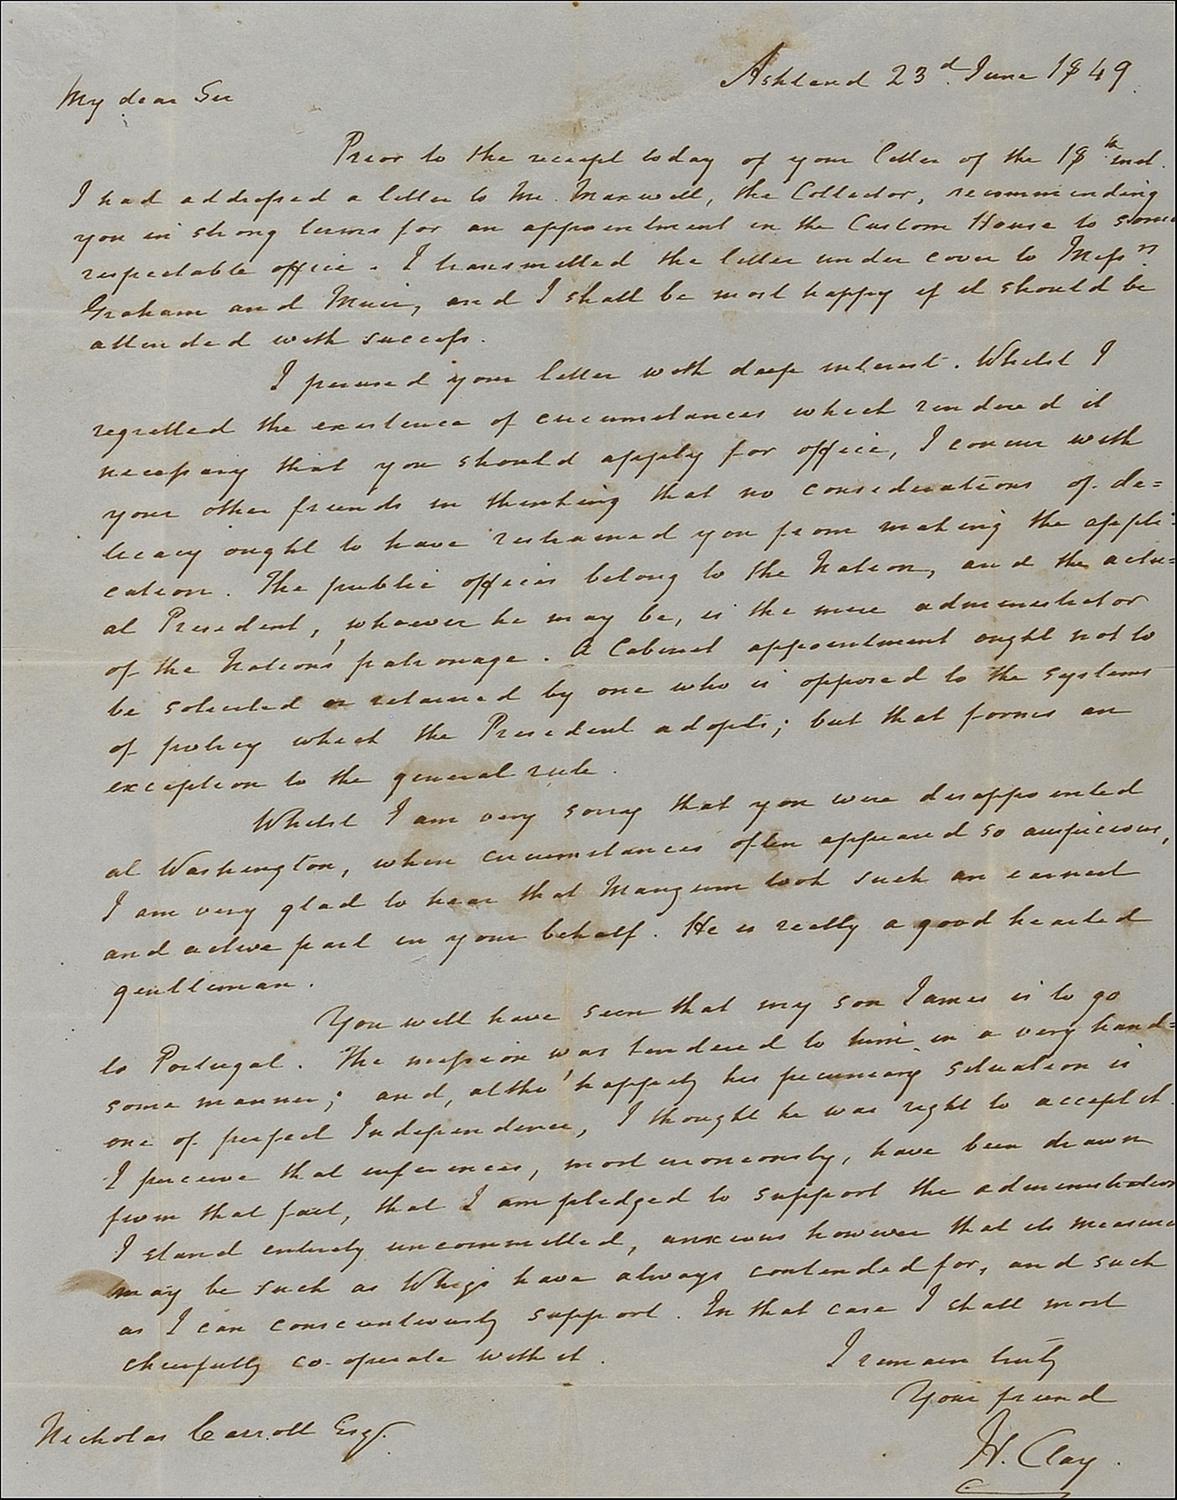 Ashland 23d. June 1849.
My dear Sir
Prior to the receipt today of your letter of the 18th inst.
I had addressed a letter to Mr. Maxwell, the Collector, recommending
you in strong terms for an appointment in the Custom House to some
respectable office. I transmitted the letter under cover to Messrs.
Graham and Muir, and I shall be most happy if it should be
attended with success.
I perused your letter with deep interest. Whilst I
regretted the existence of circumstances which rendered it
necessary that you should apply for office, I concur with
your other friends in thinking that no considerations of de=
licacy ought to have restrained you from making the appli=
cation. The public offices belong to the Nation, and the actu=
al President, whoever he may be, is the mere administrator
of the Nation's patronage. A Cabinet appointment ought not to
be solicited or retained by one who is opposed to the systems
of policy which the President adopts; but that forms an
exception to the general rule.
Whilst I am very sorry that you were disappointed
at Washington, when circumstances often appeared so auspicious,
I am very glad to hear that Mangum took such an earnest
and active part in your behalf. He is really a good hearted
gentleman.
You will have seen that my son James is to go
to Portugal. The mission was tendered to him in a very hand=
some manner; and, altho' happily his pecuniary situation is
one of perfect Independence, I thought he was right to accept it.
I perceive that inferences, most erroneously, have been drawn
from that fact, that I am pledged to support the administration
I stand entirely uncommitted, anxious however that its measures
may be such as Whigs have always contended for, and such
as I can conscientiously support. In that case I shall most
cheerfully co-operate with it.
I remain truly
Your friend
H. Clay.
Nicholas Carroll Esqr.